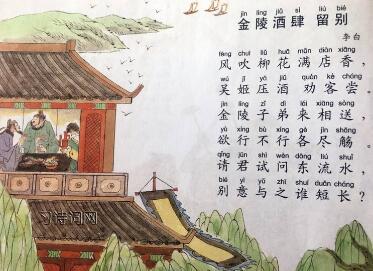 jīn líng jiǔ sì liú bié
金陵酒肆留别
李白
fēng chuī liǔ huā mǎn diàn xiāng
风吹柳花满店香，
wú jī yā jiǔ quàn kè cháng
吴姬压酒劝客尝。
jīn líng zǐ dì lái xiāng sòng
金陵子弟来相送，
yù xíng bù xíng gè jìn shāng
欲行不行各尽觞。
qǐng jūn shì wèn dōng liú shuǐ
请君试问东流水，
bié yì yǔ zhī shuí duǎn cháng
别意与之谁短长？
诗词网